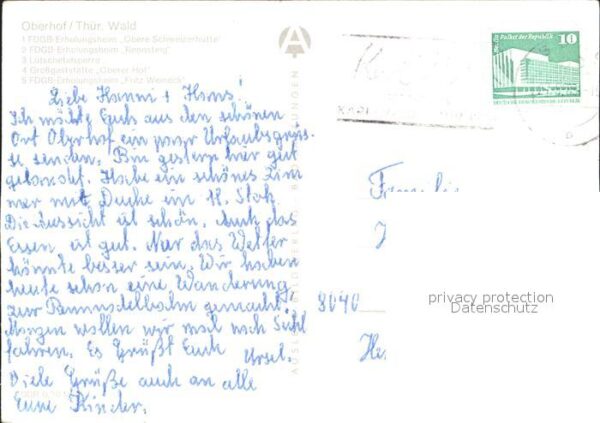 Oberhof / Thür. Wald
1 FDGB-Erholungsheim „Obere Schweizerhütte"
2 FDGB-Erholungsheim „Rennsteig"
3 Lütschetalsperre
4 Großgaststätte „Oberer Hof"
5 FDGB-Erholungsheim „Fritz Weineck"
Palast der Republik
10
Liebe Hanni + Hans!
Ich möchte Euch aus den schönen
Ort Oberhof ein paar Urlaubsgrüs-
se senden. Bin gestern hier gut
gelandet. Habe ein schönes Zim
mer mit Dusche im 18. Stok
Die Aussicht ist schön. Auch das
Essen ist gut. Nur das Wetter
könnte besser sein. Wir haben
heute schon eine Wanderung
zur Rennrodelbahn gemacht.
Morgen wollen wir mal nach Suhl
fahren. Es Grüßt Euch
Ursel.
Viele Grüße auch an alle
Eure Kinder.
Familie
J
8040
He.
privacy protection
Datenschutz